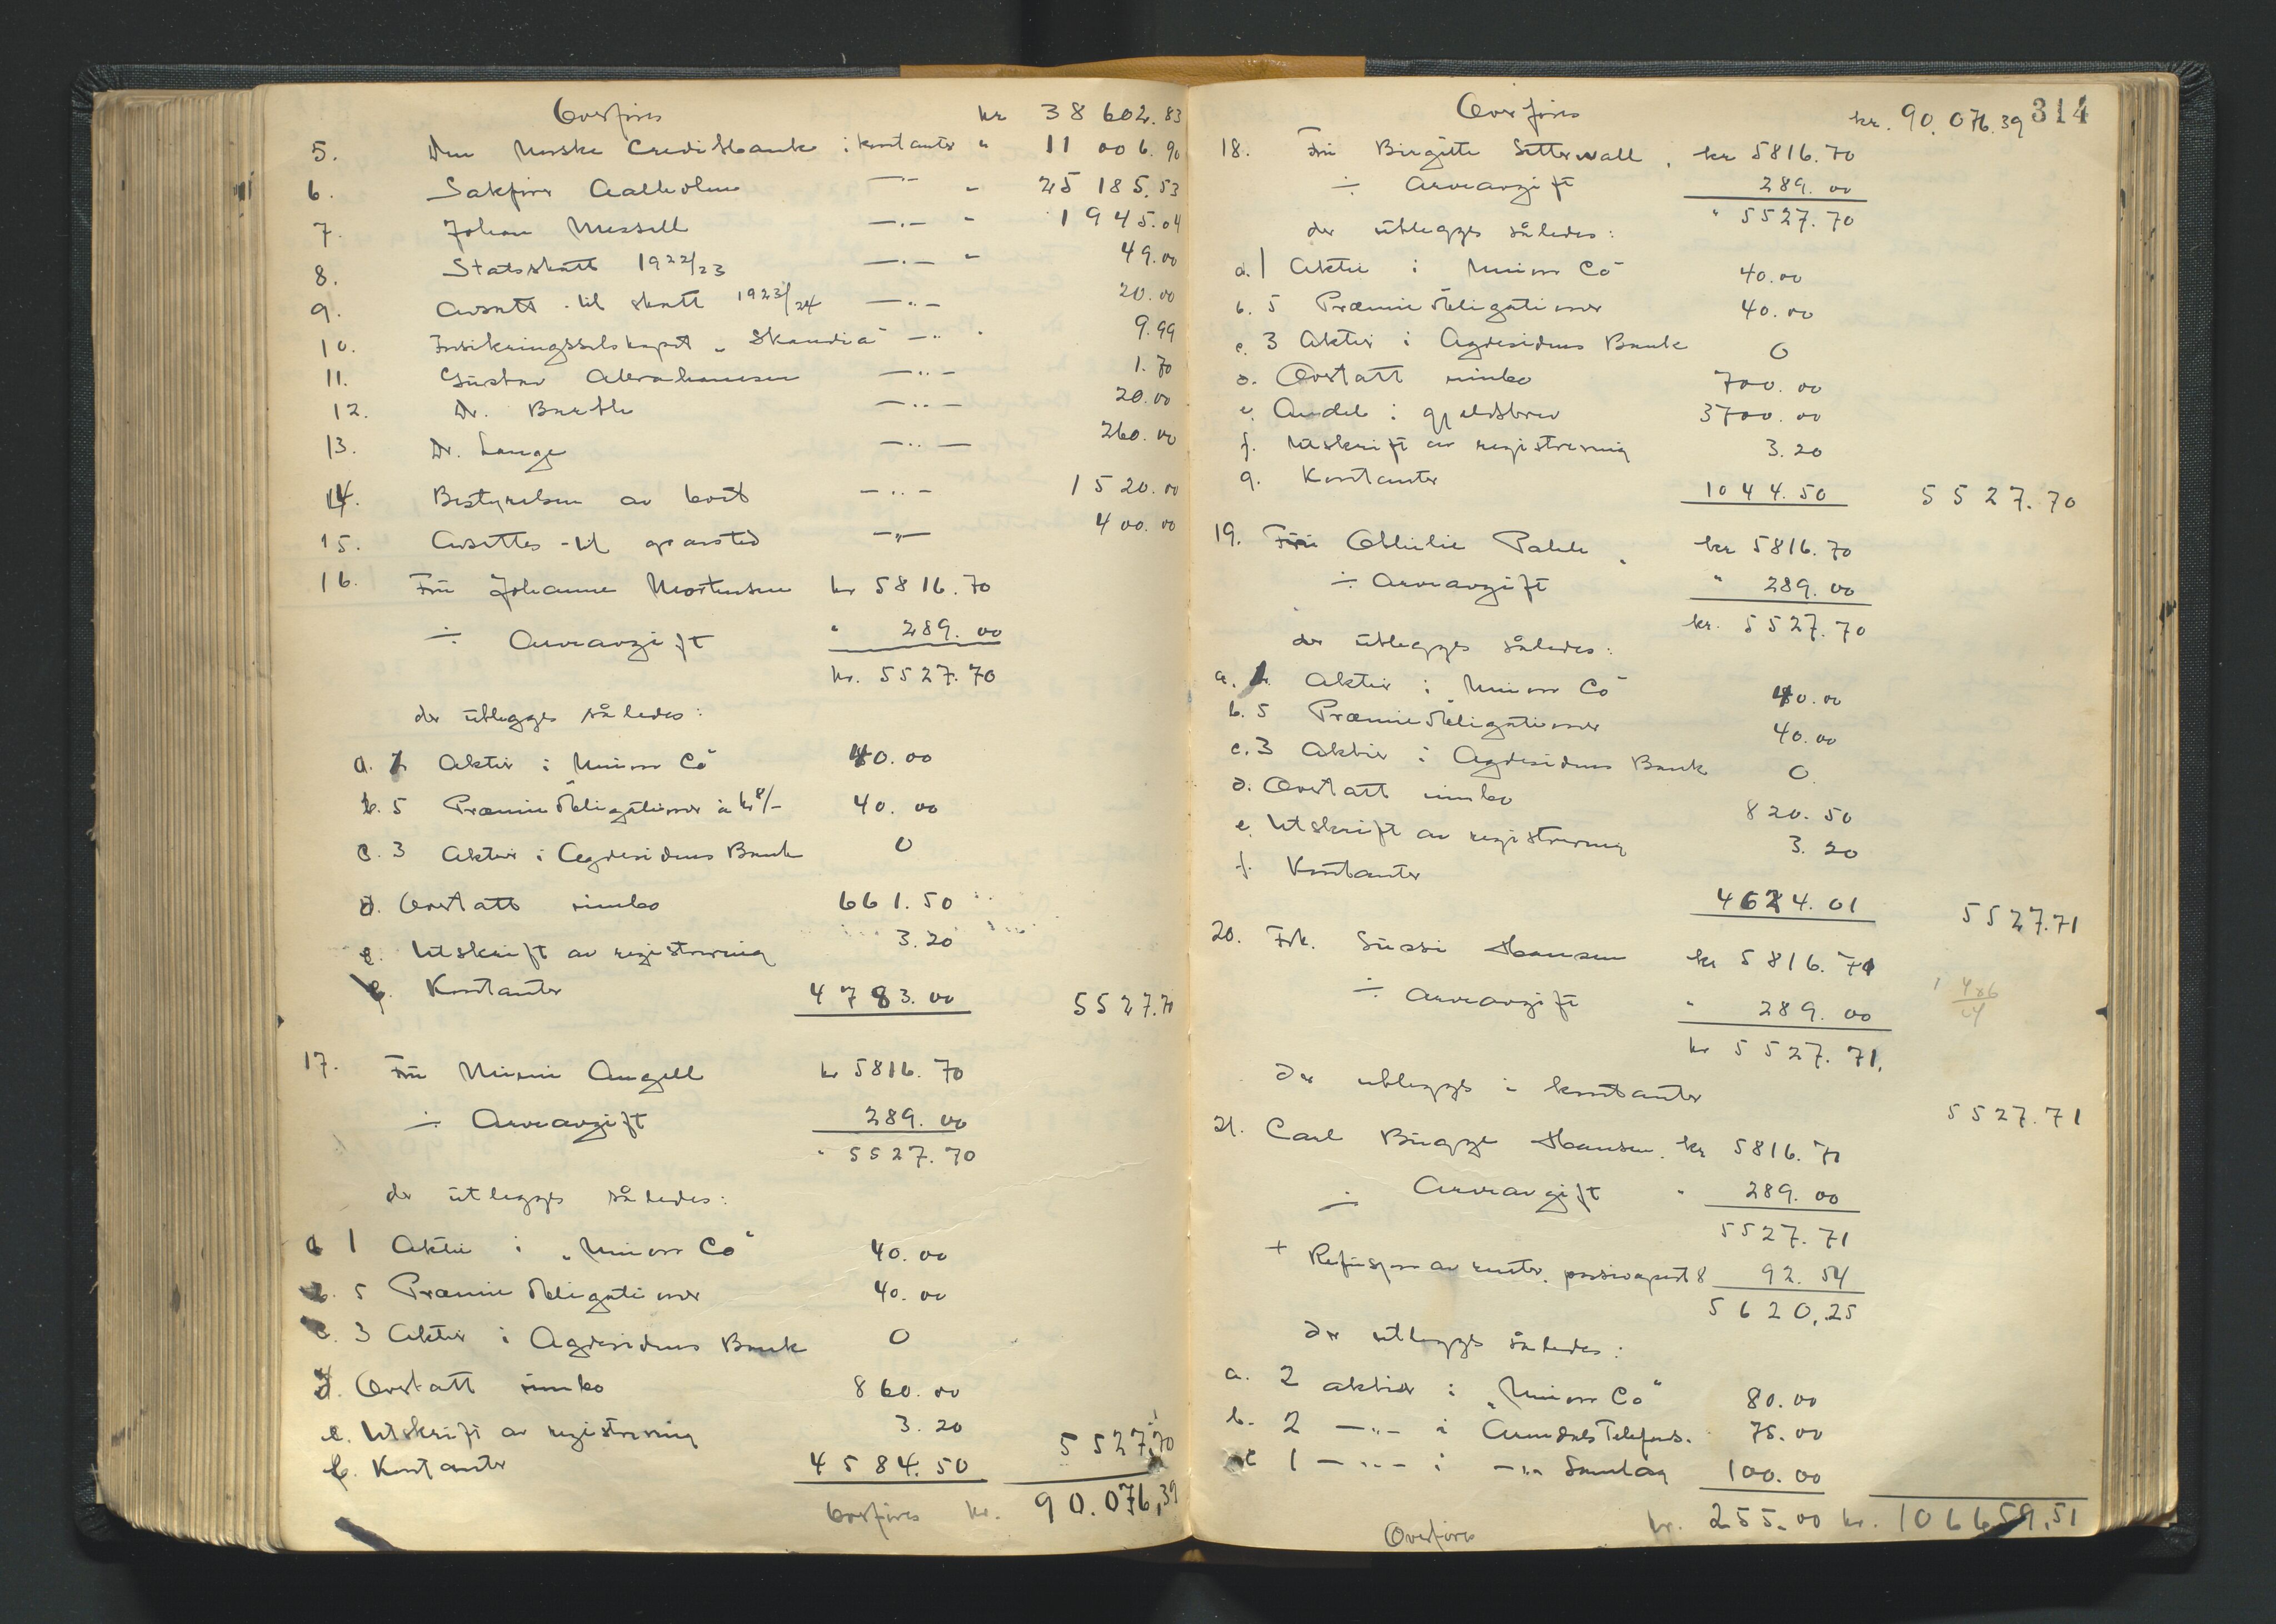 Overføres kr 38 602.83
5. Den Norske Creditbank i kontanter " 11 006.90
6. Sakfører Aalholm —"— " 25 185.53
7. Johan Messell —"— " 1945.04
8. Statsskatt 1922/23 —"— " 49.00
9. Avsatt til skatt 1923/24 —"— 20.00
10. Forsikringsselskapet „Skandia" —"— " 9.99
11. Gustav Abrahamsen —"— 1.70
12. Dr. Barth —"— 20.00
13. Dr. Lange —"— 260.00
14. Bestyrelsen av boet —"— 1520.00
15. Avsettes til gravsted —"— 400.00
16. Frü Johanne Mortensen kr 5816.70
÷ Arveavgift " 289.00
kr. 5527.70
der ütlegges således:
a. 1 Aktie i Union Co" 40.00
b. 5 Præmieobligationer à kr 8/- 40.00
c. 3 Aktier i Agdesidens Bank 0
d. Overtatt innbo 661.50
e. Utskrift av registrering 3.20
f. Kontanter 4783.00 5527.70
17. Frü Mimi Angell kr 5816.70
÷ Arveavgift 289.00
" 5527.70
der ütlegges således:
a 1 Aktie i „Union Co" 40.00
b. 5 Præmieobligationer 40.00
c. 3 Aktier i Agdesidens Bank 0
d. Overtatt innbo 860.00
e. Utskrift av registrering 3.20
f. Kontanter 4584.50 5527.70
Overføres kr. 90.076,39
314
Overføres kr. 90.076.39
18. Frü Birgitte Setterwall, kr 5816.70
÷ Arveavgift 289.00
" 5527.70
der ütlegges således:
a. 1 Aktie i Union Co" 40.00
b. 5 Præmieobligationer 40.00
c. 3 Aktier i Agdesidens Bank 0
d. Overtatt innbo 700.00
e. Andel i gjeldsbrev 3700.00
f. Utskrift av registrering 3.20
g. Kontanter 1044.50 5527.70
19. Frü Othilie Palle, kr 5816.70
÷ Arveavgift " 289.00
kr. 5527.70
der ütlegges således:
a. 1 Aktier i „Union Co" 40.00
b. 5 Præmieobligationer 40.00
c. 3 Aktier i Agdesidens Bank 0
d. Overtatt innbo 820.50
e. Utskrift av registrering 3.20
f. Kontanter 4624.01 5527.71
20. Frk. Süssi Hansen kr 5816.71
÷ Arveavgift " 289.00
kr 5527.71.
der utlegges i kontanter 5527.71
21. Carl Bügge Hansen. kr 5816.71
÷ Arveavgift " 289.00
5527.71
+ Refusjon av renter, passivapost 8 92.54
5620,25
der utlegges således:
a. 2 aktier i „Union Co" 80.00
b. 2 —"— i Arendals Telefons. 75.00
c 1 —"— i —"— Samlag 100.00
Overføres kr. 255.00 kr. 106659,51